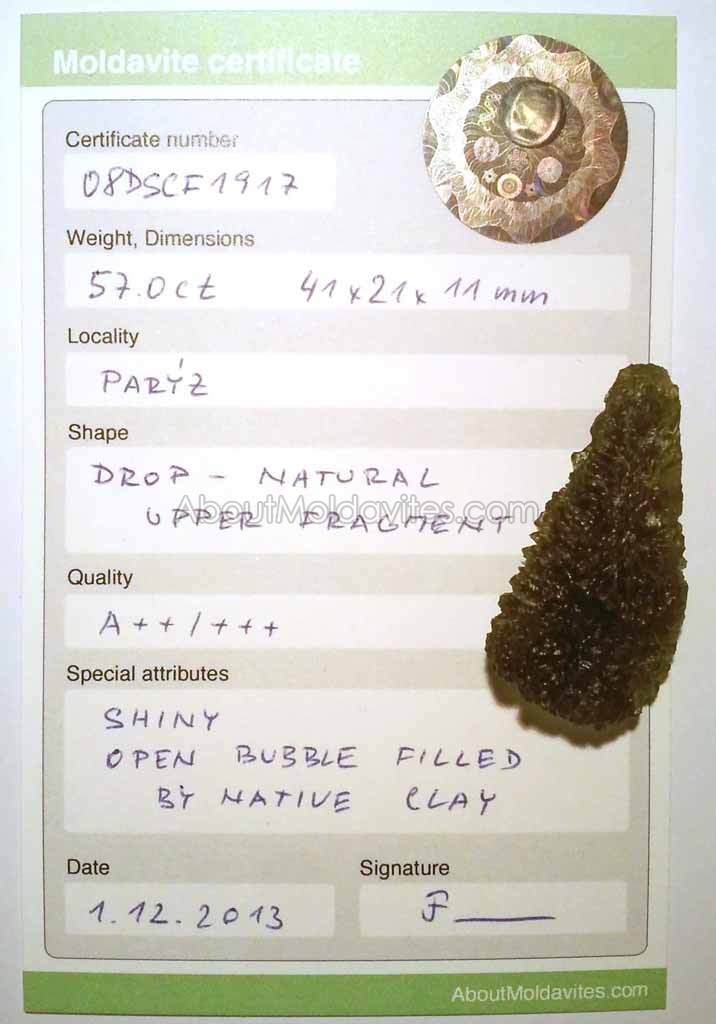 Moldavite certificate
Certificate number
08DSCF1917
Weight, Dimensions
57.0ct 41x21x11mm
Locality
PARÝZ
Shape
DROP - NATURAL
AboutMoldavites.com
UPPER FRAGMENT
Quality
A++/+++
Special attributes
SHINY
OPEN BUBBLE FILLED
BY NATIVE CLAY
Date Signature
1.12.2013 F
AboutMoldavites.com